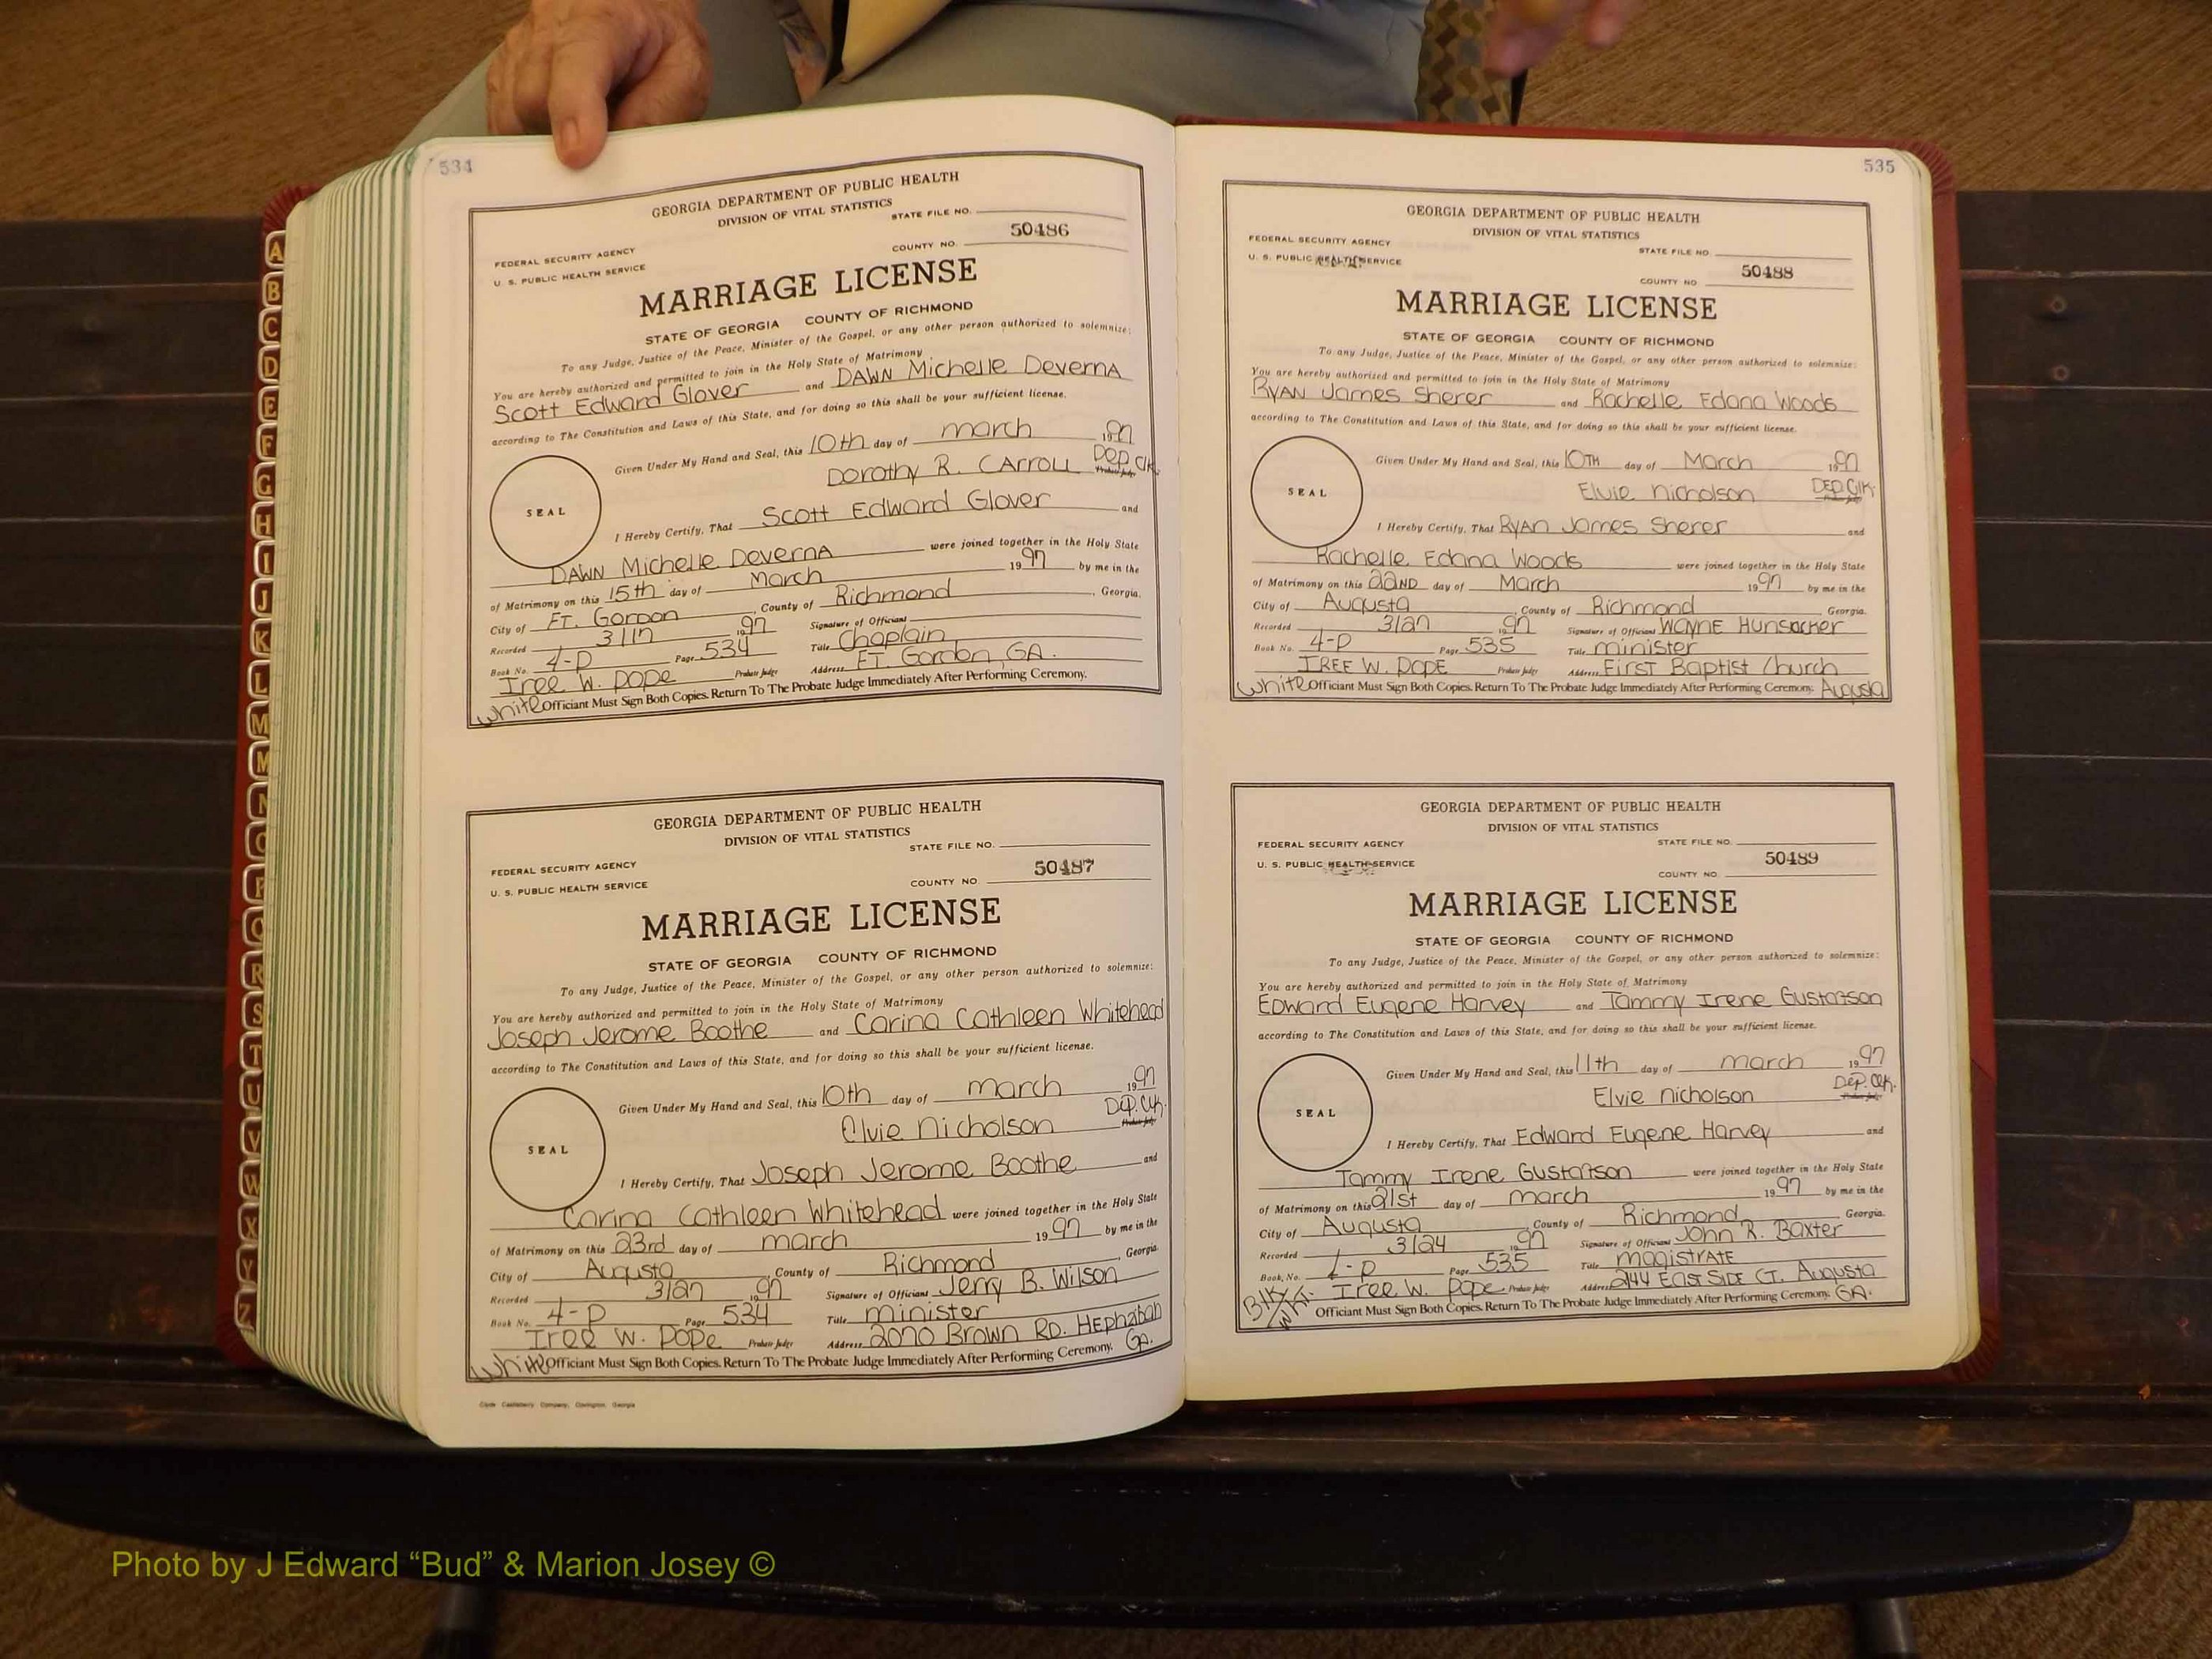 534
GEORGIA DEPARTMENT OF PUBLIC HEALTH
DIVISION OF VITAL STATISTICS
STATE FILE NO.
FEDERAL SECURITY AGENCY
U. S. PUBLIC HEALTH SERVICE
COUNTY NO. 50486
MARRIAGE LICENSE
STATE OF GEORGIA COUNTY OF RICHMOND
To any Judge, Justice of the Peace, Minister of the Gospel, or any other person authorized to solemnize:
You are hereby authorized and permitted to join in the Holy State of Matrimony
Scott Edward Glover and DAWN Michelle DevernA
according to The Constitution and Laws of this State, and for doing so this shall be your sufficient license.
Given Under My Hand and Seal, this 10th day of march 1997
Dorothy R. CArroll Dep Clk. Probate Judge
SEAL
I Hereby Certify, That Scott Edward Glover and
DAWN Michelle DevernA were joined together in the Holy State
of Matrimony on this 15th day of March 1997 by me in the
City of FT. Gordon, County of Richmond, Georgia.
Recorded 3/17 1997 Signature of Officiant
Book No. 4-P Page 534 Title Chaplain
Iree W. Pope Probate Judge Address FT. Gordon, GA.
White Officiant Must Sign Both Copies. Return To The Probate Judge Immediately After Performing Ceremony.
GEORGIA DEPARTMENT OF PUBLIC HEALTH
DIVISION OF VITAL STATISTICS
STATE FILE NO.
FEDERAL SECURITY AGENCY
U. S. PUBLIC HEALTH SERVICE
COUNTY NO 50487
MARRIAGE LICENSE
STATE OF GEORGIA COUNTY OF RICHMOND
To any Judge, Justice of the Peace, Minister of the Gospel, or any other person authorized to solemnize:
You are hereby authorized and permitted to join in the Holy State of Matrimony
Joseph Jerome Boothe and Carina Cathleen Whitehead
according to The Constitution and Laws of this State, and for doing so this shall be your sufficient license.
Given Under My Hand and Seal, this 10th day of march 1997
Elvie Nicholson Dep. Clk. Probate Judge
SEAL
I Hereby Certify, That Joseph Jerome Boothe and
Carina Cathleen Whitehead were joined together in the Holy State
of Matrimony on this 23rd day of march 1997 by me in the
City of Augusta, County of Richmond, Georgia
Recorded 3/27 1997 Signature of Officiant Jerry B. Wilson
Book No. 4-P Page 534 Title minister
Iree W. Pope Probate Judge Address 2070 Brown RD. Hephzibah
White Officiant Must Sign Both Copies. Return To The Probate Judge Immediately After Performing Ceremony. Ga.
Clyde Castleberry Company, Covington, Georgia
535
GEORGIA DEPARTMENT OF PUBLIC HEALTH
DIVISION OF VITAL STATISTICS
FEDERAL SECURITY AGENCY
STATE FILE NO.
U. S. PUBLIC HEALTH SERVICE
COUNTY NO 50488
MARRIAGE LICENSE
STATE OF GEORGIA COUNTY OF RICHMOND
To any Judge, Justice of the Peace, Minister of the Gospel, or any other person authorized to solemnize:
You are hereby authorized and permitted to join in the Holy State of Matrimony
RYAN James Sherer and Rachelle Edana Woods
according to The Constitution and Laws of this State, and for doing so this shall be your sufficient license.
Given Under My Hand and Seal, this 10TH day of March 1997
Elvie Nicholson DEP. Clk. Probate Judge
SEAL
I Hereby Certify, That RYAN James Sherer and
Rachelle Edana Woods were joined together in the Holy State
of Matrimony on this 22ND day of March 1997 by me in the
City of Augusta, County of Richmond Georgia.
Recorded 3/27 1997 Signature of Officiant WAYNE Hunsacker
Book No. 4-P Page 535 Title minister
IREE W. POPE Probate Judge Address First Baptist Church
White Officiant Must Sign Both Copies. Return To The Probate Judge Immediately After Performing Ceremony. Augusta
GEORGIA DEPARTMENT OF PUBLIC HEALTH
DIVISION OF VITAL STATISTICS
FEDERAL SECURITY AGENCY
STATE FILE NO.
U. S. PUBLIC HEALTH SERVICE
COUNTY NO. 50489
MARRIAGE LICENSE
STATE OF GEORGIA COUNTY OF RICHMOND
To any Judge, Justice of the Peace, Minister of the Gospel, or any other person authorized to solemnize:
You are hereby authorized and permitted to join in the Holy State of Matrimony
Edward Eugene Harvey and Tammy Irene Gustafson
according to The Constitution and Laws of this State, and for doing so this shall be your sufficient license.
Given Under My Hand and Seal, this 11th day of march 1997
Elvie Nicholson Dep. Clk. Probate Judge
SEAL
I Hereby Certify, That Edward Eugene Harvey and
Tammy Irene Gustafson were joined together in the Holy State
of Matrimony on this 21st day of march 1997 by me in the
City of Augusta, County of Richmond Georgia.
Recorded 3/24 1997 Signature of Officiant John R. Baxter
Book No. 4-P Page 535 Title magistrATE
Iree W. Pope Probate Judge Address 2144 EAST SIDE CT. Augusta
Blk/Wht. Officiant Must Sign Both Copies. Return To The Probate Judge Immediately After Performing Ceremony. GA.
A
B
C
D
E
F
G
H
I
J
K
L
M
M
N
O
P
Q
R
S
T
U
V
W
X
Y
Z
Photo by J Edward “Bud” & Marion Josey ©